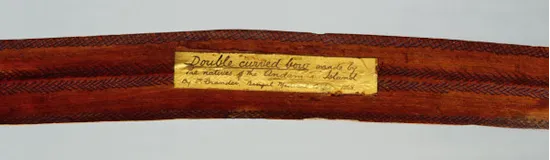 Double curved bow made by
the natives of the Andaman Island
By T. Brander. Bengal